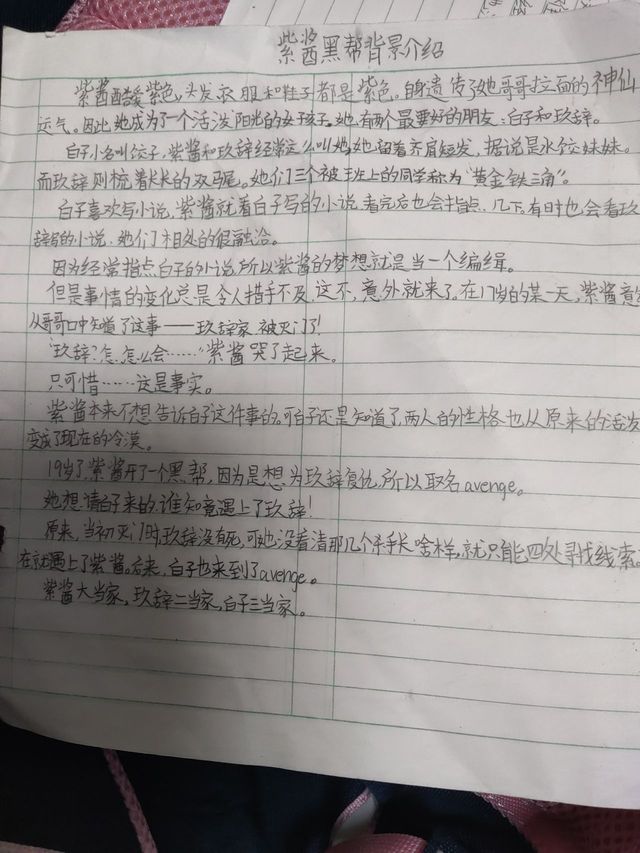 紫酱黑帮背景介绍
紫酱酷爱紫色，头发衣服和鞋子都是紫色。自身遗传了她哥哥拉面的神仙
运气。因此她成为了一个活泼阳光的女孩子。她有两个最要好的朋友：白子和玖辞。
白子小名叫饺子，紫酱和玖辞经常这么叫她，她留着齐肩短发，据说是水饺妹妹。
而玖辞则梳着长长的双马尾。她们三个被班上的同学称为“黄金铁三角”。
白子喜欢写小说，紫酱就看白子写的小说，看完后也会指点几下，有时也会看玖
辞写的小说，她们相处的很融洽。
因为经常指点白子的小说，所以紫酱的梦想就是当一个编缉。
但是事情的变化总是令人措手不及，这不，意外就来了。在17岁的某一天，紫酱意
从哥哥口中知道了这事——玖辞家被灭门了！
“玖辞？怎、怎么会……”紫酱哭了起来。
只可惜……这是事实。
紫酱本来不想告诉白子这件事的。可白子还是知道了，两人的性格也从原来的活发
变成了现在的冷漠。
19岁了，紫酱开了一个黑帮，因为是想为玖辞复仇，所以取名avenge。
她想请白子来的，谁知竟遇上了玖辞！
原来，当初灭门时，玖辞没有死，可她没看清那几个杀手长啥样，就只能四处寻找线索。
在就遇上了紫酱。后来，白子也来到了avenge。
紫酱大当家，玖辞二当家，白子三当家。